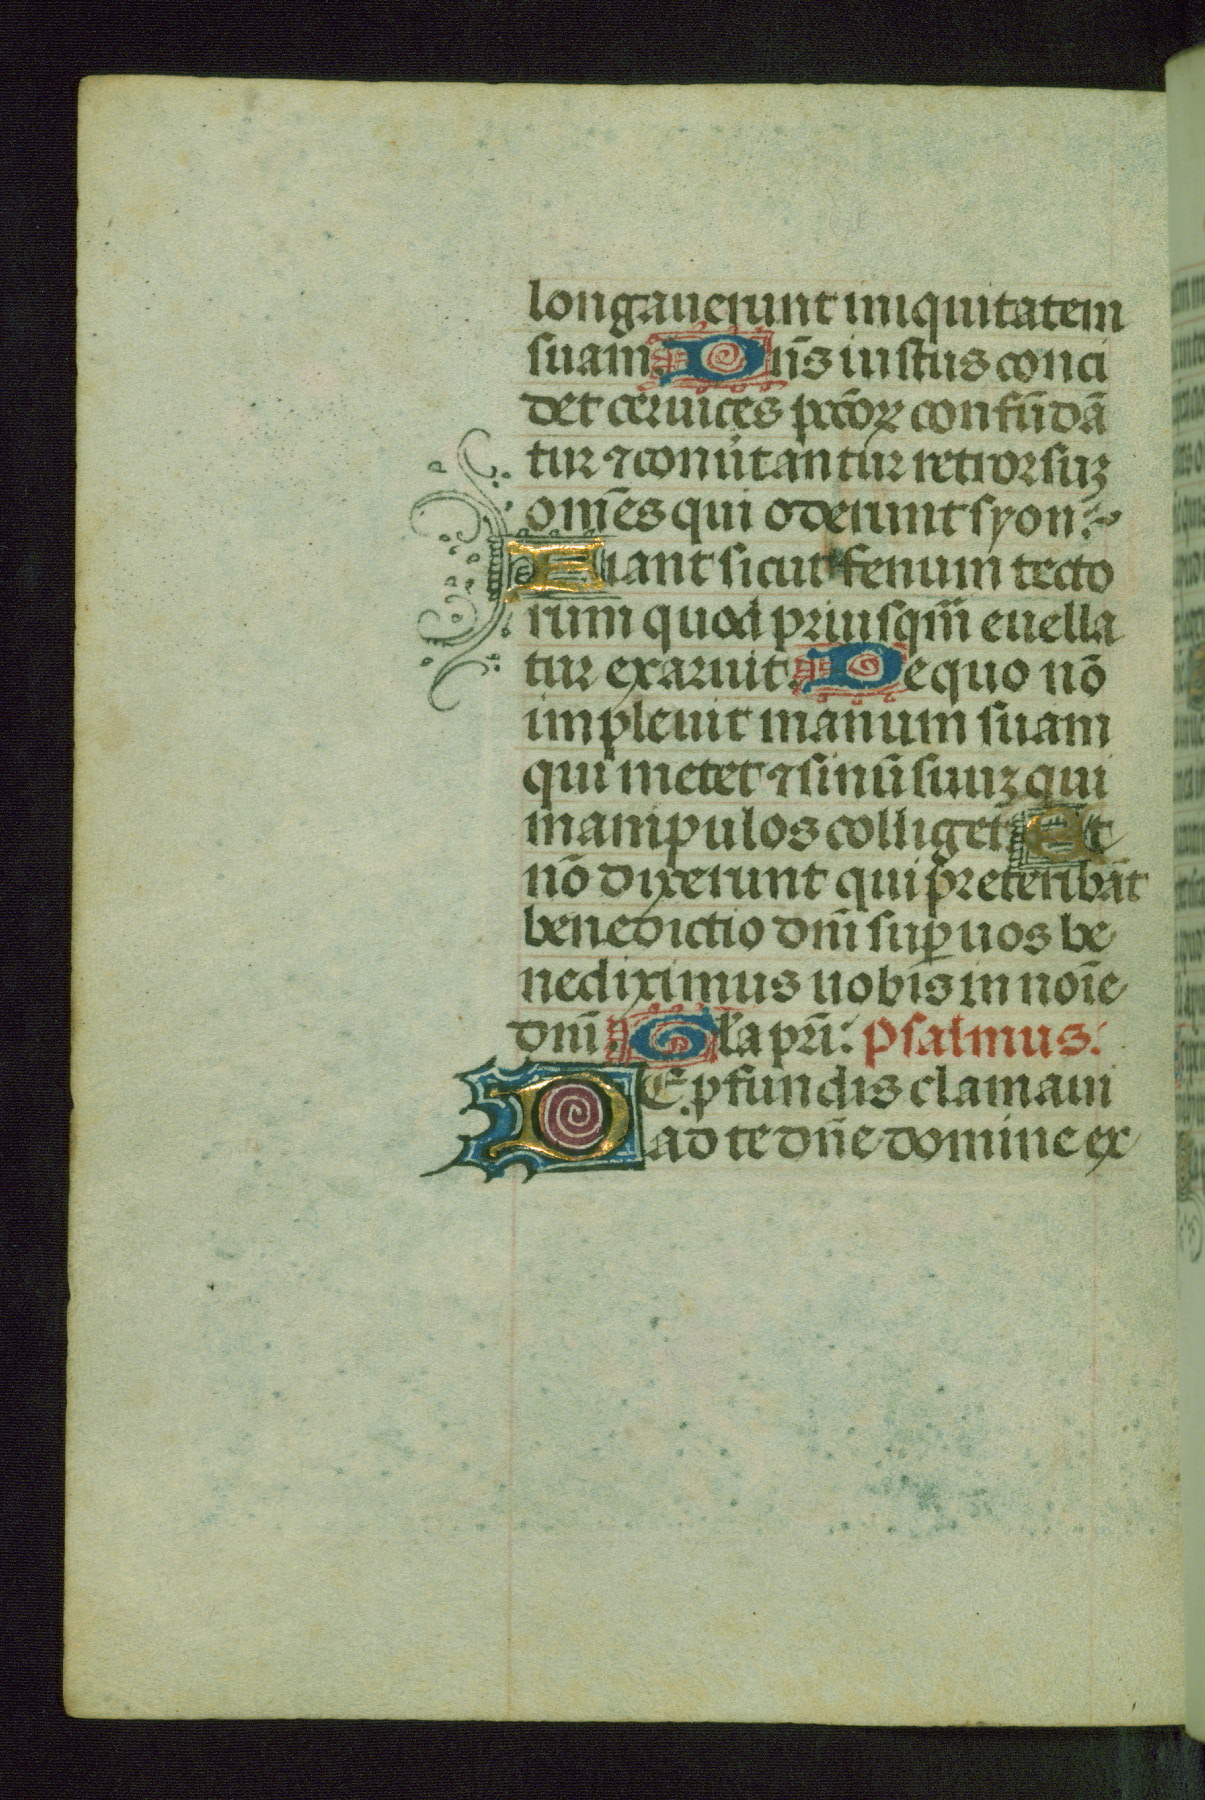 longauerunt iniquitatem
suam. Dn̄s iustus conci
det ceruices pcc̄oꝝ confūdā
tur ⁊ conūtantur retrorsuꝫ
om̄es qui oderunt syon.
Fiant sicut fenum tecto
rum quod priusqm̄ euella
tur exaruit. De quo nō
impleuit manum suam
qui metet ⁊ sinū suuꝫ qui
manipulos colliget. Et
nō dixerunt qui preteribāt
benedictio dn̄i suꝑ uos be
nediximus uobis in noīe
dn̄i. Gl̄a pr̄i. Psalmus.
DE ꝓfundis clamaui
ad te dn̄e domine ex